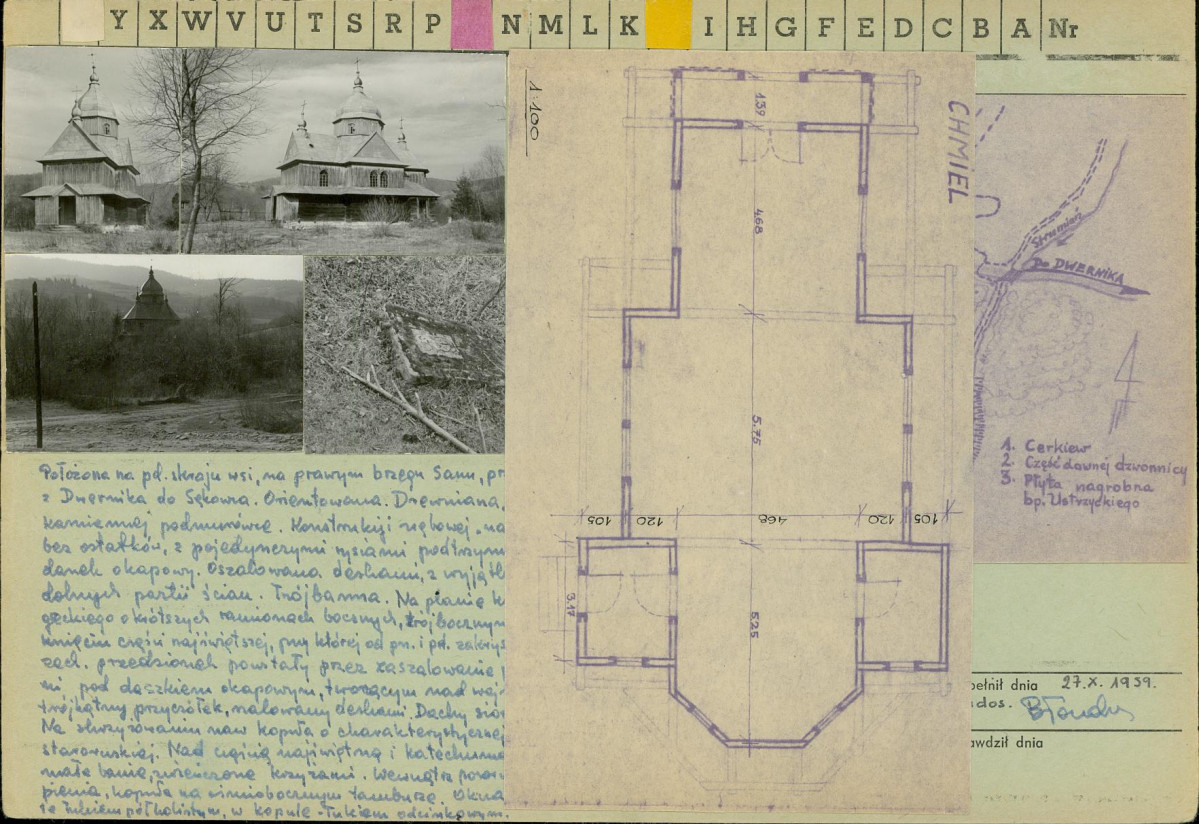 Y X W V U T S R P N M L K I H G F E D C B A Nr
1:100
CHMIEL
1.59
468
5.75
105 120 468 120 105
3.17
525
Strumień
Do DWERNIKA
1. Cerkiew
2. Część dawnej dzwonnicy
3. Płyta nagrobna
bp. Ustrzyckiego
Położona na pd. skraju wsi, na prawym brzegu Sanu, pr
z Dwernika do Sękowca. Orientowana. Drewniana,
kamiennej podmurówce. Konstrukcji zrębowej, na
bez ostatków, z pojedynczymi rysiami podtrzym
daszek okapowy. Oszalowana deskami, z wyjąt
dolnych partii ścian. Trójbanna. Na planie k
greckiego o krótszych ramionach bocznych, trójbocznym
knięciu części najświętszej, przy której od pn. i pd. zakrys
zach. przedsionek powstały przez zaszalowanie
mi pod daszkiem okapowym, tworzącym nad wej
trójkątny przyczółek, malowany deskami. Dachy sio
Na skrzyżowaniu naw kopuła o charakterystycznej
staroruskiej. Nad częścią najświętszą i katechume
małe banie, zwieńczone krzyżami. Wewnątrz
pienia, kopuła na ośmiobocznym tamburze. Okna
te łukiem półkolistym, w kopule - łukiem odcinkowym.
pełnił dnia 27.X.1959.
ados.
awdził dnia